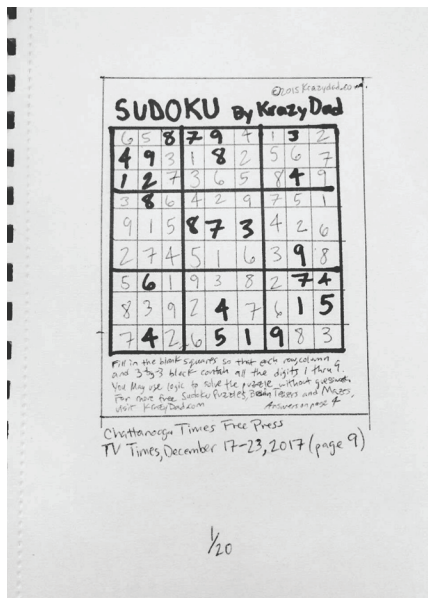 ©2015 KrazyDad.com
SUDOKU By KrazyDad
6 5 8 7 9 4 1 3 2
4 9 3 1 8 2 5 6 7
1 2 7 3 6 5 8 4 9
3 8 6 4 2 9 7 5 1
9 1 5 8 7 3 4 2 6
2 7 4 5 1 6 3 9 8
5 6 1 9 3 8 2 7 4
8 3 9 2 4 7 6 1 5
7 4 2 6 5 1 9 8 3
Fill in the blank squares so that each row, column
and 3-by-3 block contain all the digits 1 thru 9.
You may use logic to solve the puzzle without guesswork
For more free Sudoku Puzzles, Brain Teasers and Mazes,
visit KrazyDad.com Answers on page 4
Chattanooga Times Free Press
TV Times, December 17-23, 2017 (page 9)
1/20